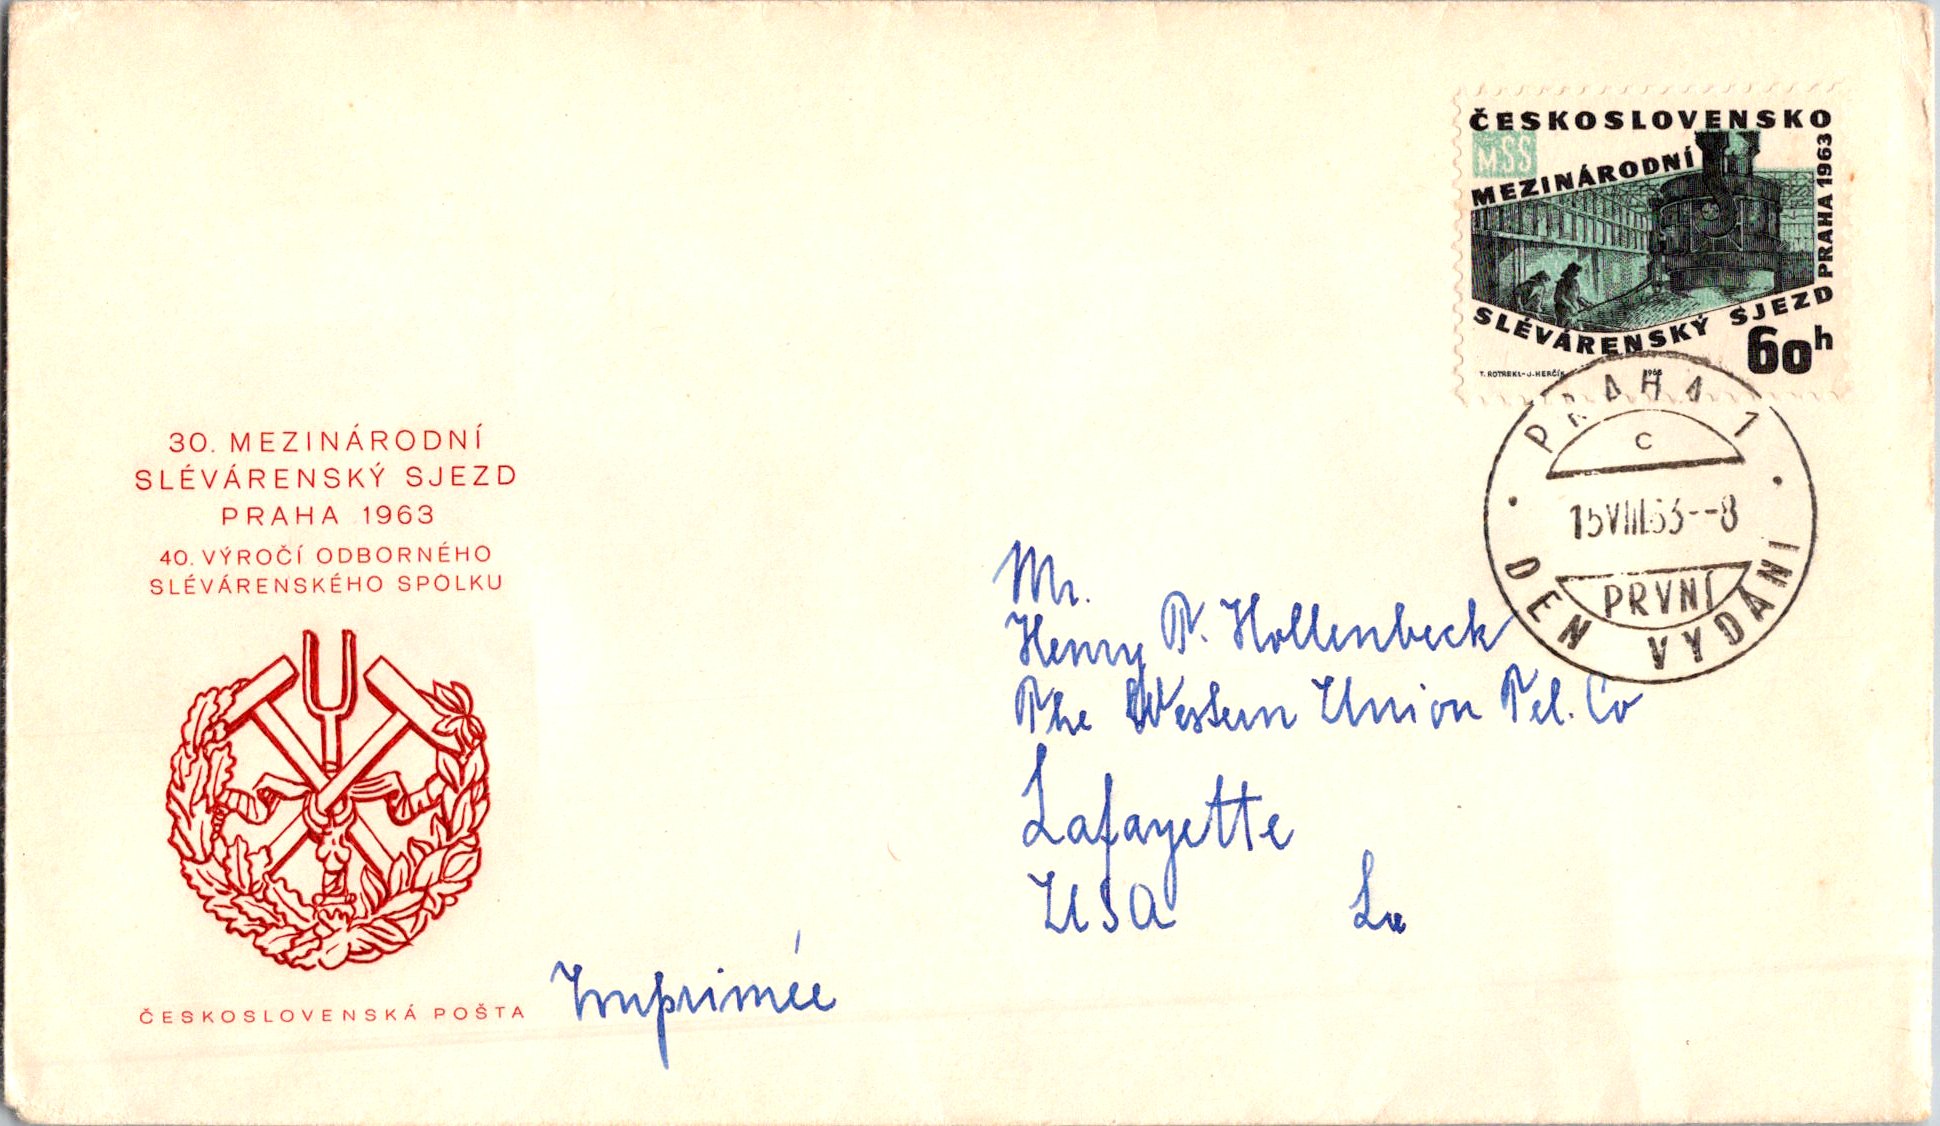 ČESKOSLOVENSKO
MSS
MEZINÁRODNÍ
PRAHA 1963
SLÉVÁRENSKÝ SJEZD
60h
T. ROTREKL-J. HERČÍK
PRAHA 1
c
15VIII.63--8
PRVNÍ
DEN VYDÁNÍ
30. MEZINÁRODNÍ
SLÉVÁRENSKÝ SJEZD
PRAHA 1963
40. VÝROČÍ ODBORNÉHO
SLÉVÁRENSKÉHO SPOLKU
Mr.
Henry T. Hollenbeck
The Western Union Tel. Co
Lafayette
USA La
Imprimée
ČESKOSLOVENSKÁ POŠTA